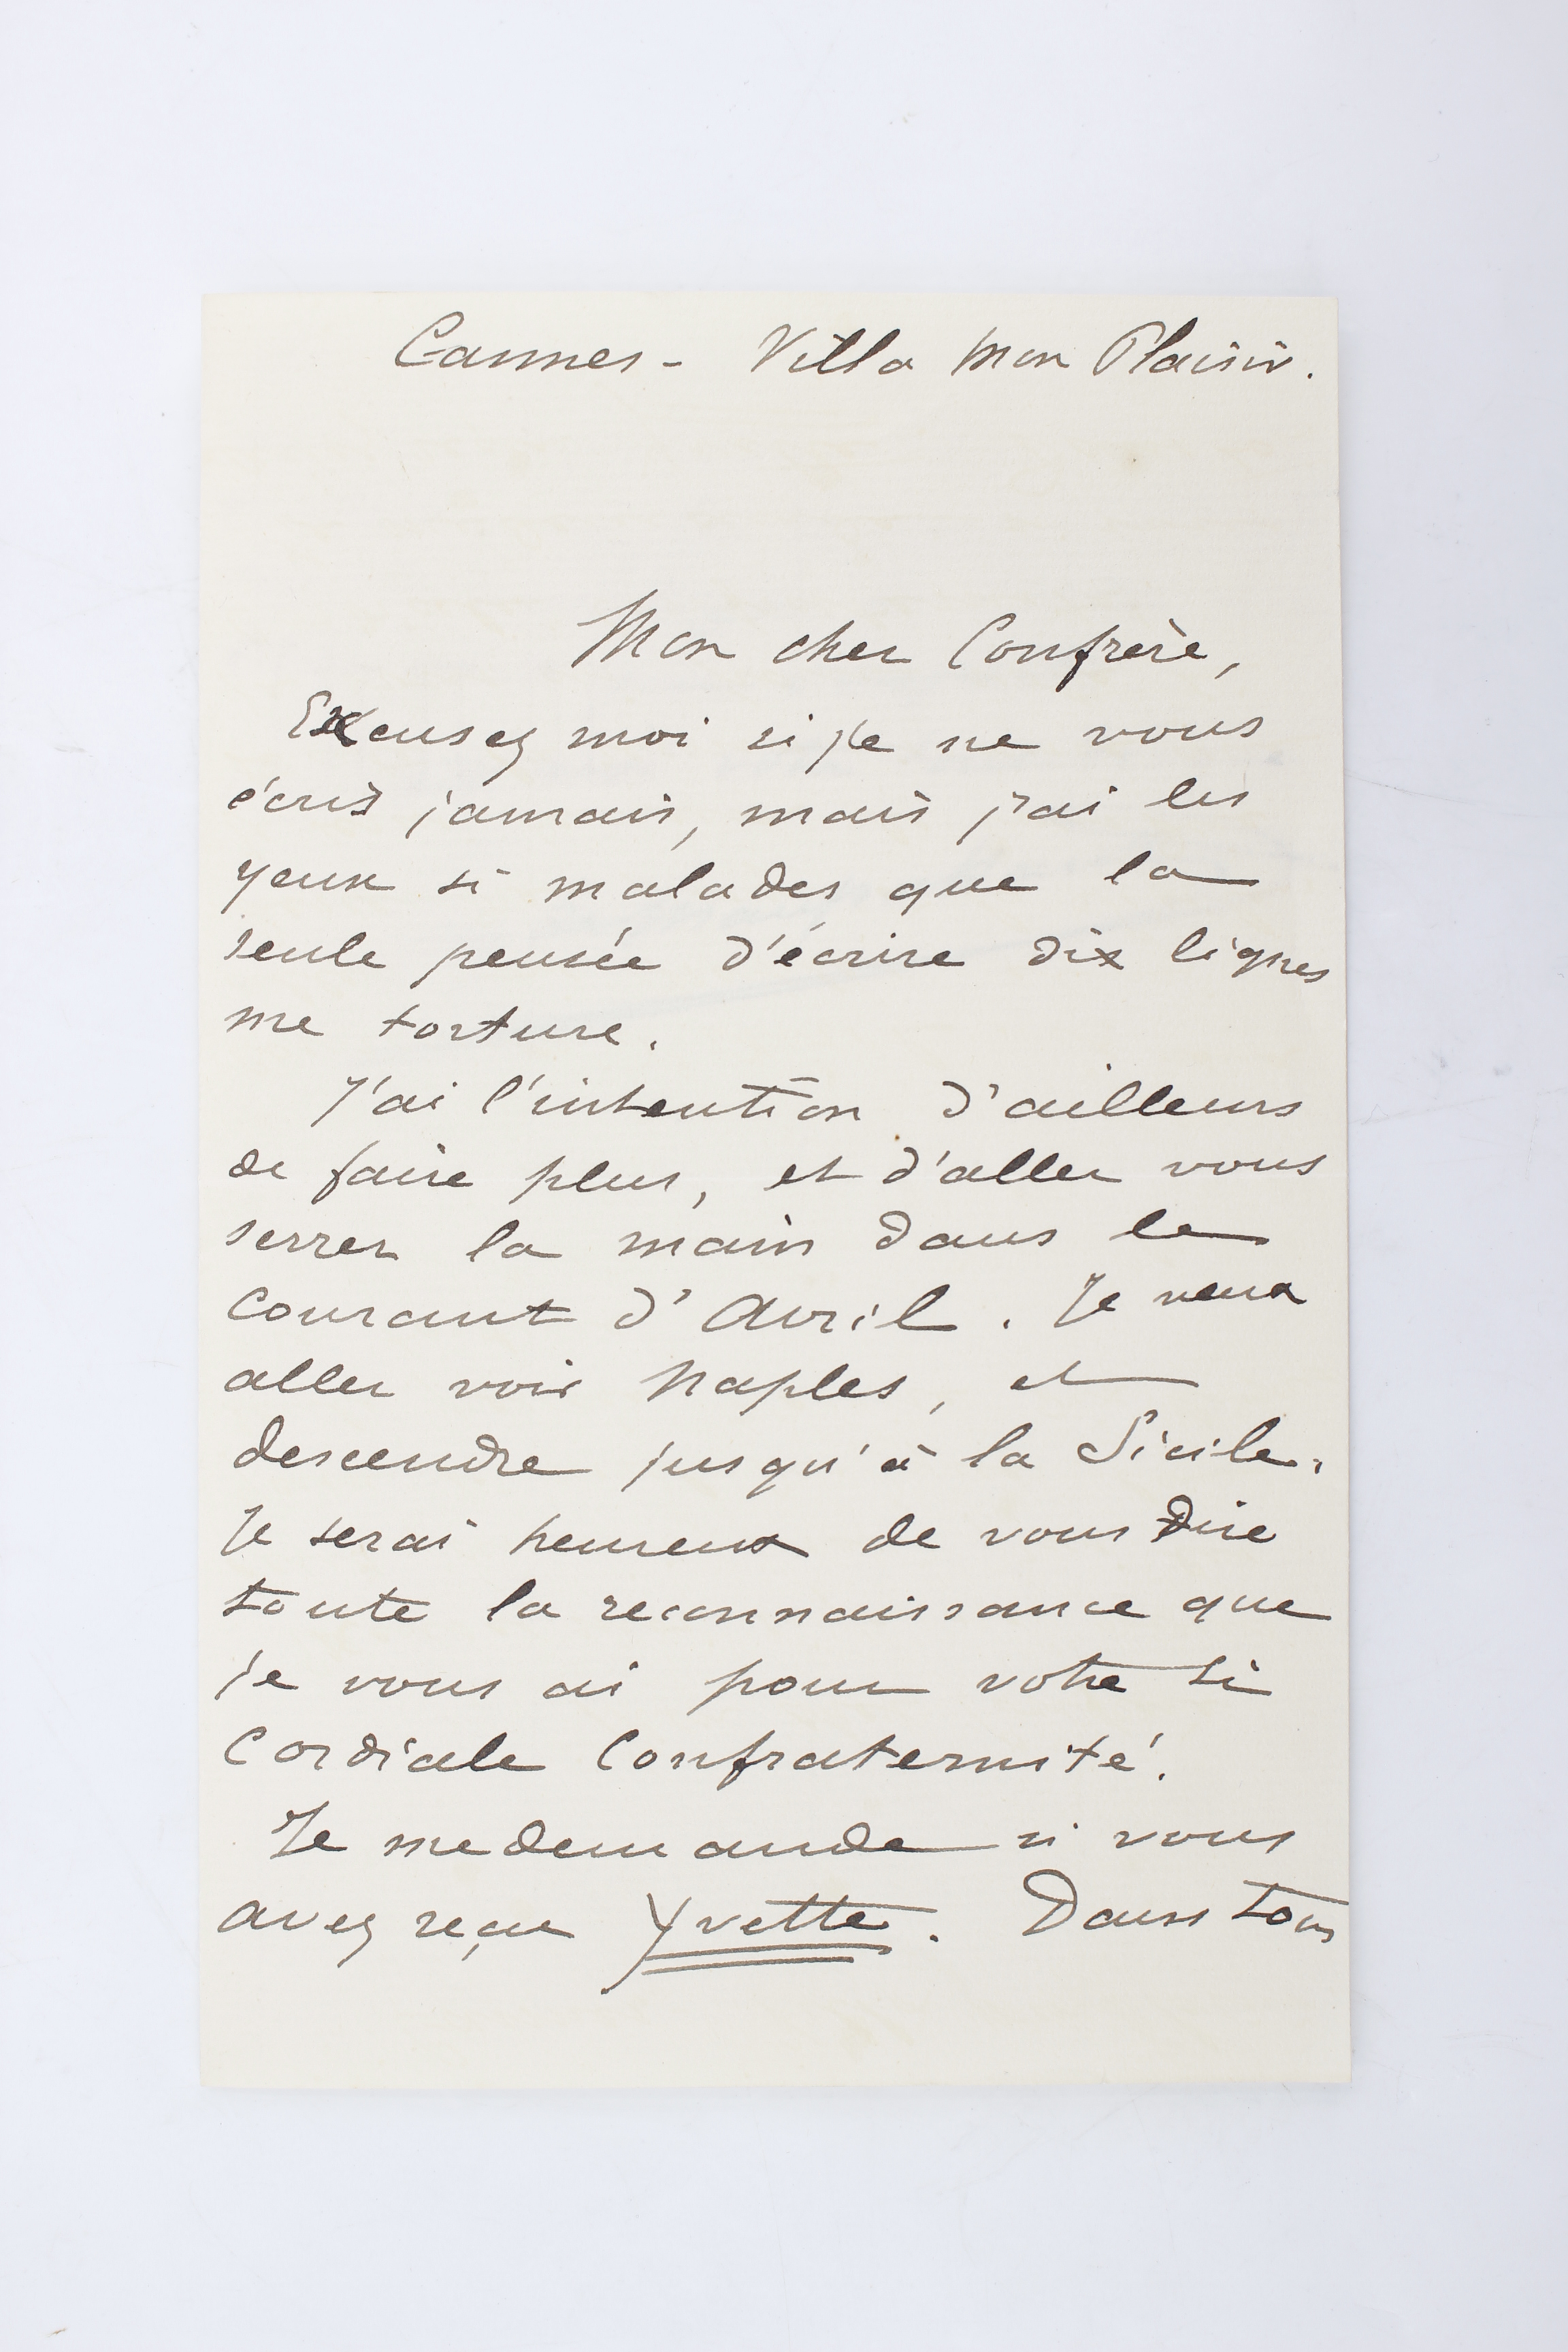 Cannes - Villa Mon Plaisir.
Mon cher Confrère,
Excusez moi si je ne vous
écris jamais, mais j'ai les
yeux si malades que la
seule pensée d'écrire dix lignes
me torture.
J'ai l'intention d'ailleurs
de faire plus, et d'aller vous
serrer la main dans le
courant d'Avril. Je veux
aller voir Naples, et
descendre jusqu'à la Sicile.
Je serai heureux de vous dire
toute la reconnaissance que
je vous ai pour votre si
cordiale confraternité.
Je me demande si vous
avez reçu Yvette. Dans tous